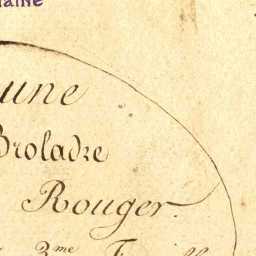 aine
une
Broladre
Rouger.
3.me F